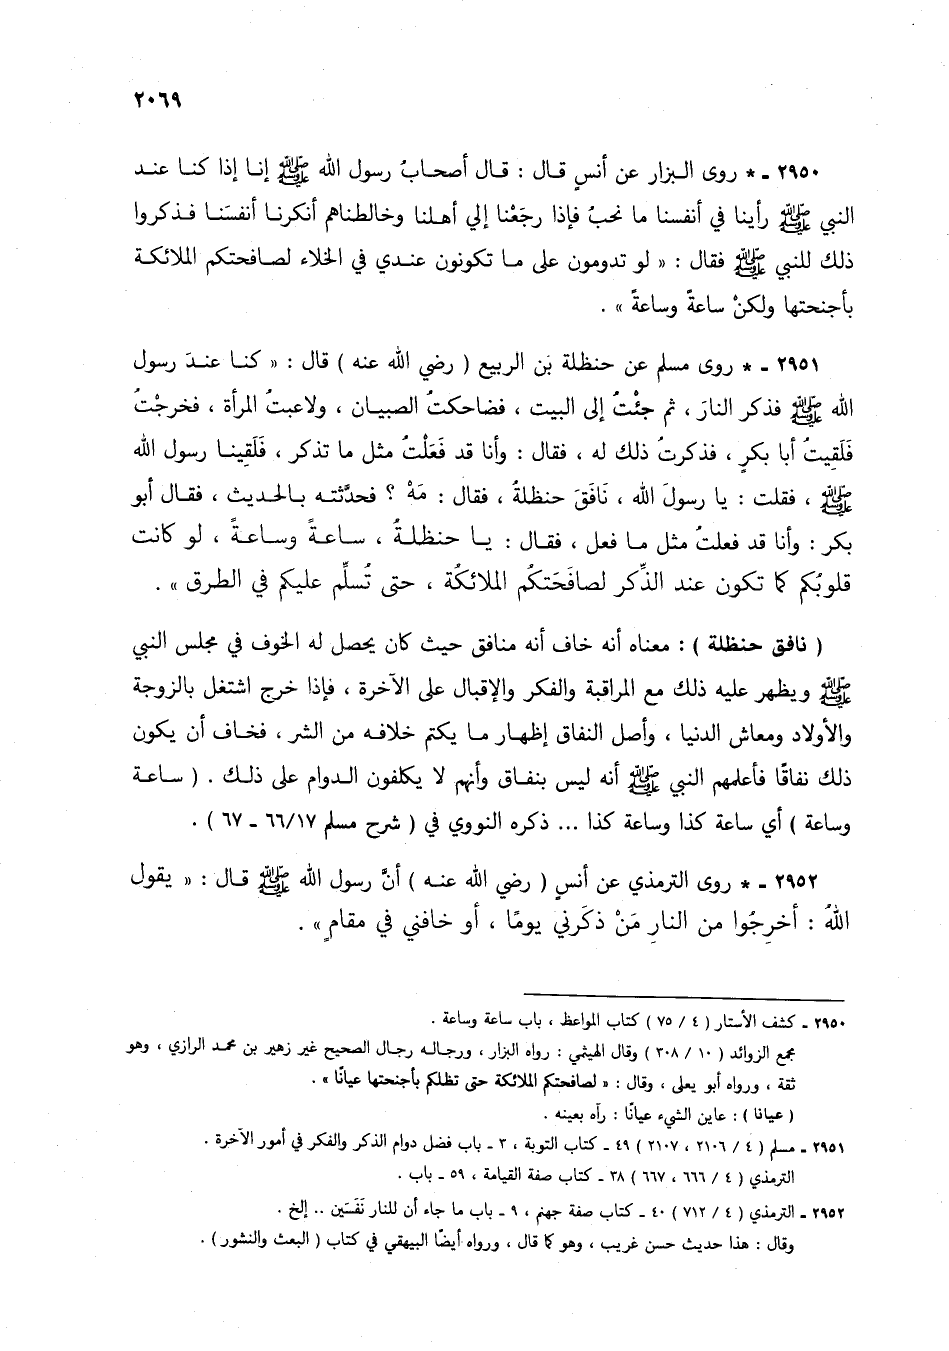 ٢٠٦٩
٢٩٥٠ - * روى البزار عن أنسٍ قال : قال أصحابُ رسول الله ﷺ إنا إذا كنا عند
النبي ﷺ رأينا في أنفسنا ما نحبُ فإذا رجَعْنا إلي أهلنا وخالطناهم أنكرنا أنفسَنا فذكروا
ذلك للنبي ﷺ فقال : « لو تدومون على ما تكونون عندي في الخلاء لصافحتكم الملائكة
بأجنحتها ولكنْ ساعةً وساعةً » .
٢٩٥١ - * روى مسلم عن حنظلة بن الربيع ( رضي الله عنه ) قال : « كنا عندَ رسول
الله ﷺ فذكر النارَ ، ثم جئْتُ إلى البيت ، فضاحكتُ الصبيان ، ولاعبتُ المرأة ، فخرجْتُ
فَلَقِيتُ أبا بكرٍ ، فذكرتُ ذلك له ، فقال : وأنا قد فَعَلْتُ مثل ما تذكر ، فَلَقِينا رسول الله
ﷺ ، فقلت : يا رسولَ الله ، نَافَقَ حنظلةُ ، فقال : مَهْ ؟ فحدَّثته بالحديث ، فقال أبو
بكر : وأنا قد فعلتُ مثل ما فعل ، فقال : يا حنظلةُ ، ساعةً وساعةً ، لو كانت
قلوبُكم كما تكون عند الذِّكر لصافَحَتكُم الملائكُة ، حتى تُسلِّم عليكم في الطرق » .
( نافق حنظلة ) : معناه أنه خاف أنه منافق حيث كان يحصل له الخوف في مجلس النبي
ﷺ ويظهر عليه ذلك مع المراقبة والفكر والإقبال على الآخرة ، فإذا خرج اشتغل بالزوجة
والأولاد ومعاش الدنيا ، وأصل النفاق إظهار ما يكتم خلافه من الشر ، فخاف أن يكون
ذلك نفاقًا فأعلمهم النبي ﷺ أنه ليس بنفاق وأنهم لا يكلفون الدوام على ذلك . ( ساعة
وساعة ) أي ساعة كذا وساعة كذا ... ذكره النووي في ( شرح مسلم ٦٦/١٧ - ٦٧ ) .
٢٩٥٢ - * روى الترمذي عن أنسٍ ( رضي الله عنه ) أنَّ رسول الله ﷺ قال : « يقول
اللهُ : أخرِجُوا من النارِ مَنْ ذكَرني يومًا ، أو خافني في مقامٍ » .
٢٩٥٠ - كشف الأستار ( ٤ / ٧٥ ) كتاب المواعظ ، باب ساعة وساعة .
مجمع الزوائد ( ١٠ / ٣٠٨ ) وقال الهيثمي : رواه البزار ، ورجاله رجال الصحيح غير زهير بن محمد الرازي ، وهو
ثقة ، ورواه أبو يعلى ، وقال : « لصافحتكم الملائكة حتى تظلكم بأجنحتها عيانًا » .
( عيانا ) : عاين الشيء عيانًا : رآه بعينه .
٢٩٥١ - مسلم ( ٤ / ٢١٠٦ ، ٢١٠٧ ) ٤٩ - كتاب التوبة ، ٣ - باب فضل دوام الذكر والفكر في أمور الآخرة .
الترمذي ( ٤ / ٦٦٦ ، ٦٦٧ ) ٣٨ - كتاب صفة القيامة ، ٥٩ - باب .
٢٩٥٢ - الترمذي ( ٤ / ٧١٢ ) ٤٠ - كتاب صفة جهنم ، ٩ - باب ما جاء أن للنار نَفَسَين .. إلخ .
وقال : هذا حديث حسن غريب ، وهو كما قال ، ورواه أيضًا البيهقي في كتاب ( البعث والنشور ) .